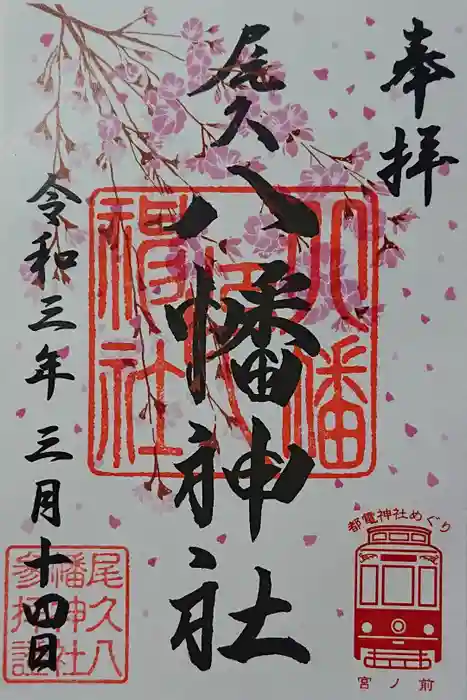 奉拝
尾久
八幡神社
令和三年三月十四日
尾久八
幡神社
参拝証
都電神社めぐり
宮ノ前